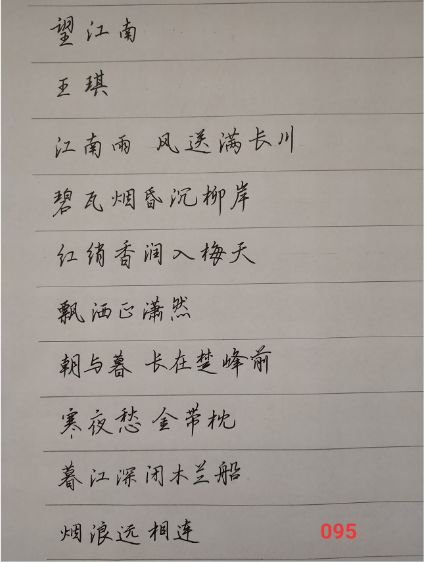 望江南
王琪
江南雨 风送满长川
碧瓦烟昏沉柳岸
红绡香润入梅天
飘洒正潇然
朝与暮 长在楚峰前
寒夜愁 金带枕
暮江深闭木兰船
烟浪远相连
095